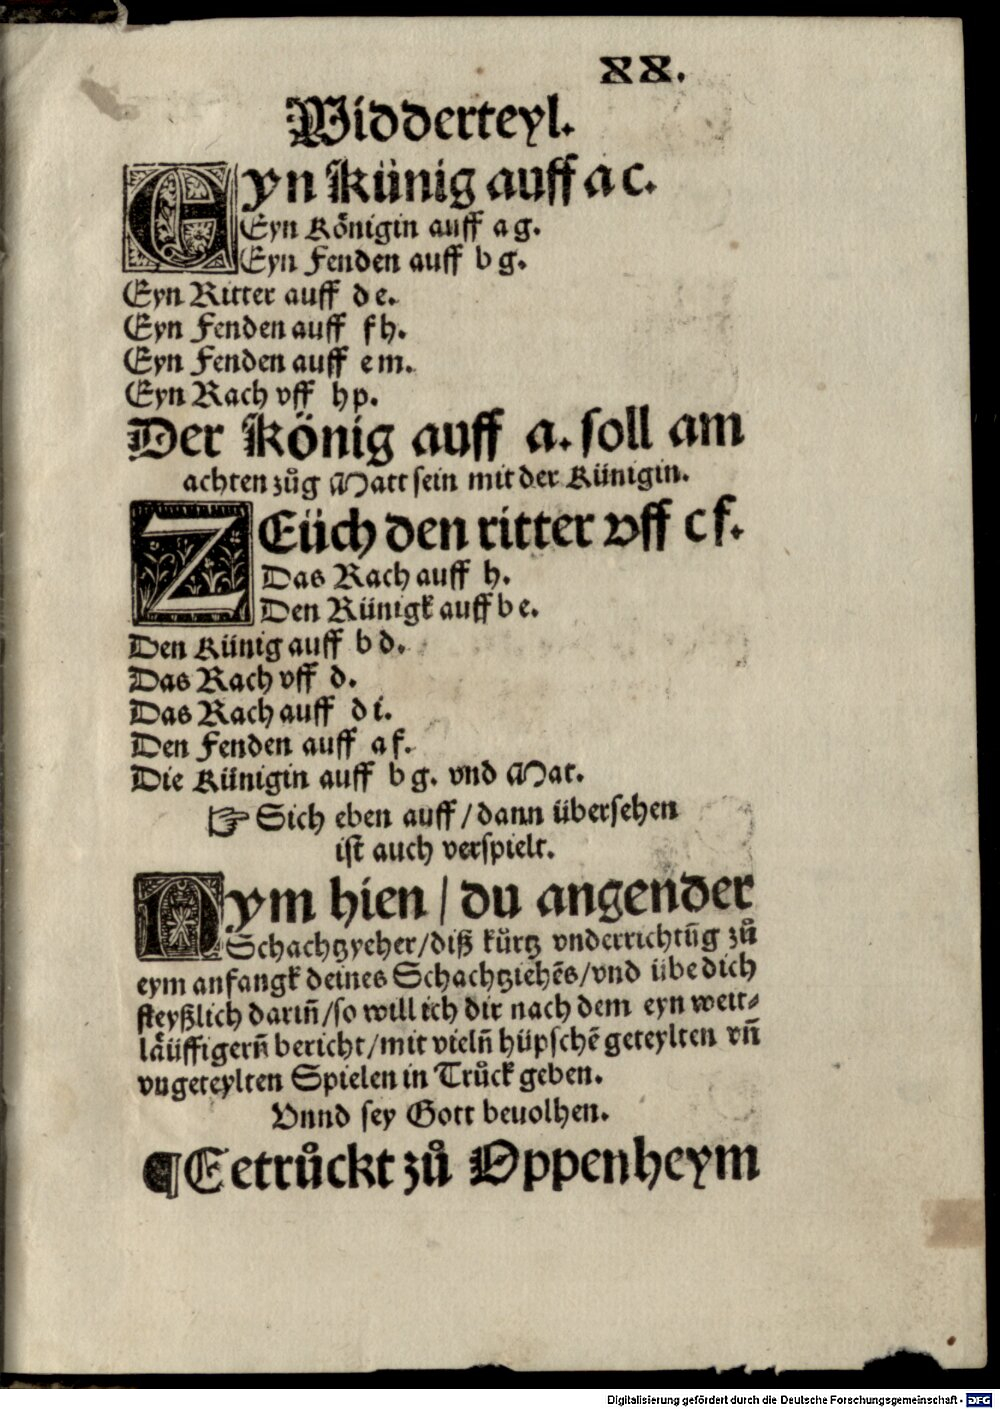 XX.
Widderteyl.
Eyn Künig auff a c.
Eyn Königin auff a g.
Eyn Fenden auff b g.
Eyn Ritter auff d e.
Eyn Fenden auff f h.
Eyn Fenden auff e m.
Eyn Rach vff h p.
Der König auff a. soll am
achten zůg Matt sein mit der Künigin.
ZEüch den ritter vff c f.
Das Rach auff h.
Den Künigk auff b e.
Den Künig auff b d.
Das Rach vff d.
Das Rach auff d i.
Den Fenden auff a f.
Die Künigin auff b g. vnd Mat.
☞ Sich eben auff / dann übersehen
ist auch verspielt.
Nym hien / du angender
Schachtzyeher / diß kürtz vnderrichtũg zů
eym anfangk deines Schachtziehẽs / vnd übe dich
fleyßlich dariñ / so will ich dir nach dem eyn weit⸗
läüffigerñ bericht / mit vielñ hüpschẽ geteylten vñ
vngeteylten Spielen in Trůck geben.
Vnnd sey Gott beuolhen.
¶ Getrůckt zů Oppenheym
Digitalisierung gefördert durch die Deutsche Forschungsgemeinschaft - DFG